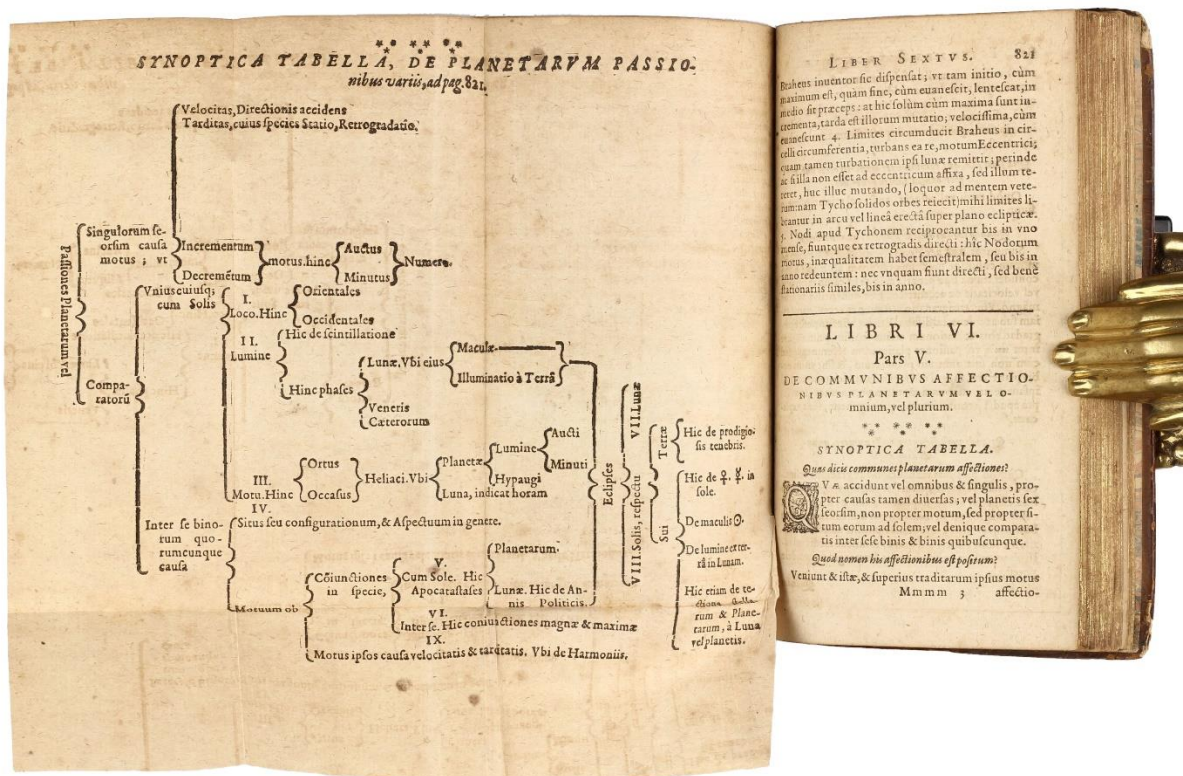 SYNOPTICA TABELLA, DE PLANETARVM PASSIO-
nibus variis, ad pag. 821.
Velocitas, Directionis accidens
Tarditas, cuius species Statio, Retrogradatio.
Passiones Planetarum vel
Singulorum se-
orsim causa
motus ; vt
Incrementum
Decremẽtum
motus. hinc
Auctus
Minutus
Numero.
Compa-
ratorũ
Vniuscuiusq;
cum Solis
I.
Loco. Hinc
Orientales
Occidentales
II.
Lumine
Hic de scintillatione
Hinc phases
Lunæ. Vbi eius
Maculæ
Illuminatio à Terrâ
Veneris
Cæterorum
III.
Motu. Hinc
Ortus
Occasus
Heliaci. Vbi
Planetæ
Lumine
Aucti
Minuti
Hypaugi
Luna, indicat horam
Inter se bino-
rum quo-
rumcunque
causa
IV.
Situs seu configurationum, & Aspectuum in genere.
Motuum ob
Cõiunctiones
in specie,
V.
Cum Sole. Hic
Apocatastases
Planetarum.
Lunæ. Hic de An-
nis Politicis.
VI.
Inter se. Hic coniunctiones magnæ & maximæ
IX.
Motus ipsos causa velocitatis & tarditatis. Vbi de Harmoniis.
Eclipses
VII. Lunæ
VIII. Solis, respectu
Terræ
Hic de prodigio-
sis tenebris.
Sui
Hic de ♀. ☿. in
sole.
De maculis ☉.
De lumine ex ter-
râ in Lunam.
Hic etiam de te-
ctione stella-
rum & Plane-
tarum, à Luna
vel planetis.
LIBER SEXTVS. 821
Braheus inventor sic dispensat; vt tam initio, cùm
maximum est, quàm fine, cùm euanescit, lentescat, in
medio sit præceps: at hic solùm cùm maxima sunt in-
crementa, tarda est illorum mutatio; velocissima, cùm
euanescunt 4. Limites circumducit Braheus in cir-
celli circumferentia, turbans ea re, motum Eccentrici;
quam tamen turbationem ipsi lunæ remittit; perinde
ac si illa non esset ad eccentricum affixa, sed illum te-
reret, huc illuc mutando, (loquor ad mentem vete-
rum: nam Tycho solidos orbes reiecit) mihi limites li-
brantur in arcu vel lineâ erectâ super plano eclipticæ.
5. Nodi apud Tychonem reciprocantur bis in vno
mense, fiuntque ex retrogradis directi: hîc Nodorum
motus, inæqualitatem habet semestralem, seu bis in
anno redeuntem: nec vnquam fiunt directi, sed benè
stationariis similes, bis in anno.
LIBRI VI.
Pars V.
DE COMMVNIBVS AFFECTIO-
NIBVS PLANETARVM VEL O-
mnium, vel plurium.
SYNOPTICA TABELLA.
Quas dicis communes planetarum affectiones?
QVæ accidunt vel omnibus & singulis, pro-
pter causas tamen diuersas; vel planetis sex
seorsim, non propter motum, sed propter si-
tum eorum ad solem; vel denique compara-
tis inter sese binis & binis quibuscunque.
Quod nomen his affectionibus est positum?
Veniunt & istæ, & superius traditarum ipsius motus
Mmmm 3 affectio-